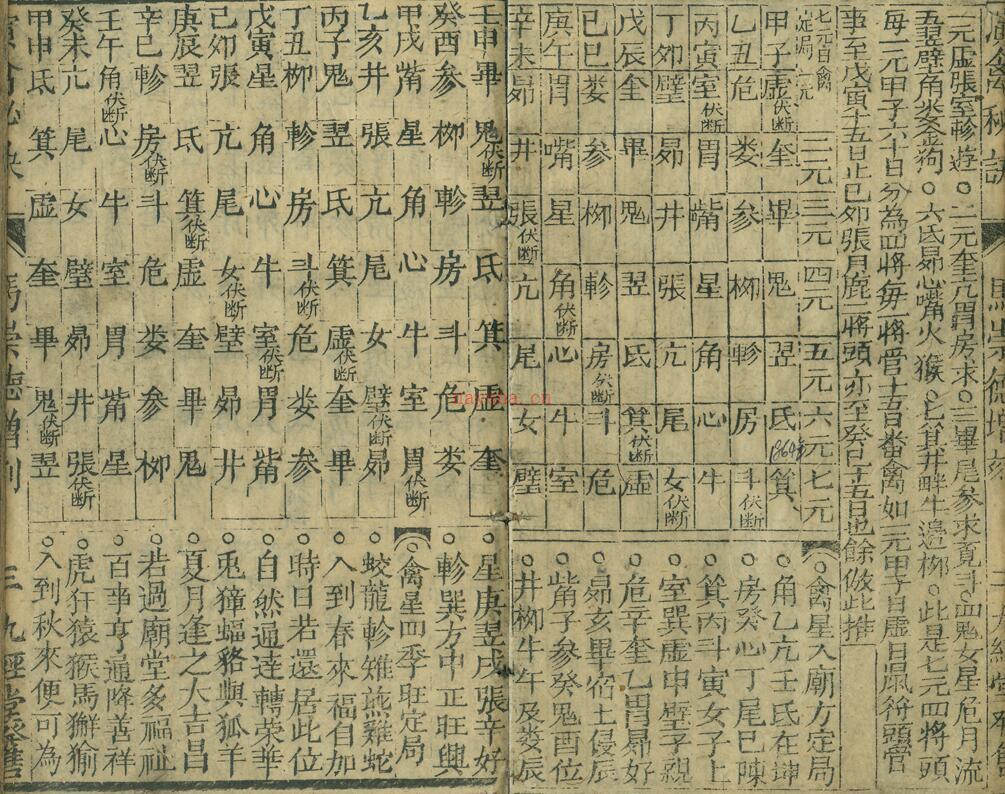 一元虛張室軫遊。二元奎亢胃房求。三畢尾參求覓斗。四鬼女星危月流
五翌壁角娄金狗。六氐昴心嘴火猴。七箕井畔牛边柳。此是七元四將頭
每一元甲子六十日分為四將每一將管十五日番禽如一元甲子日虛日鼠符頭管
事至戊寅十五日止己卯張月鹿一將頭亦至癸巳十五日也餘倣此推
七元日禽定局 一元 二元 三元 四元 五元 六元 七元
甲子虛伏断 奎 畢 鬼 翌 氐 1864年 箕
乙丑危 娄 參 柳 軫 房 斗伏断
丙寅室伏断 胃 嘴 星 角 心 牛
丁卯壁 昴 井 張 亢 尾 女伏断
戊辰奎 畢 鬼 翌 氐 箕伏断 虛
己巳娄 參 柳 軫 房伏断 斗 危
庚午胃 嘴 星 角伏断 心 牛 室
辛未昴 井 張伏断 亢 尾 女 壁
。禽星入廟方定局
。角乙亢壬氐在坤
。房癸心丁尾巳陳
。箕丙斗寅女子上
。室巽虛申壁子親
。危辛奎乙胃昴好
。昴亥畢宿土侵辰
。觜子參癸鬼酉位
。井柳牛午及娄辰
壬申畢 鬼伏断 翌 氐 箕 虛 奎
癸酉參 柳 軫 房 斗 危 娄
甲戌觜 星 角 心 牛 室 胃伏断
乙亥井 張 亢 尾 女 壁伏断 昴
丙子鬼 翌 氐 箕 虛伏断 奎 畢
丁丑柳 軫 房 斗伏断 危 娄 参
戊寅星 角 心 牛 室伏断 胃 觜
己卯張 亢 尾 女伏断 壁 昴 井
庚辰翌 氐 箕伏断 虛 奎 畢 鬼
辛巳軫 房伏断 斗 危 娄 参 柳
壬午角伏断 心 牛 室 胃 觜 星
癸未亢 尾 女 壁 昴 井 張伏断
甲申氐 箕 虛 奎 畢 鬼伏断 翌
。星庚翌戌張辛好
。軫巽方中正旺興
。禽星四季旺定局
。蛟龍軫雉燕雞蛇
。入到春來福自加
。時日若還居此位
。自然通達轉榮華
。兔獐蝠貉與狐羊
。夏月逢之大吉昌
。若過廟堂多福祉
。百事亨通降善祥
。虎犴猿猴馬獬㺄
。入到秋來便可為